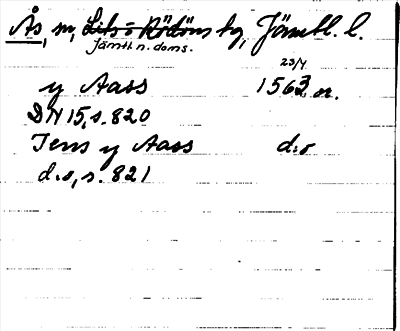 Ås, sn, Lits o Rödöns tg, Jämtl. l.
Jämtl. n. doms.
23/4
y Aass 1563 or.
DN 15, s. 820
Jens y Aass d:o
d:o, s. 821